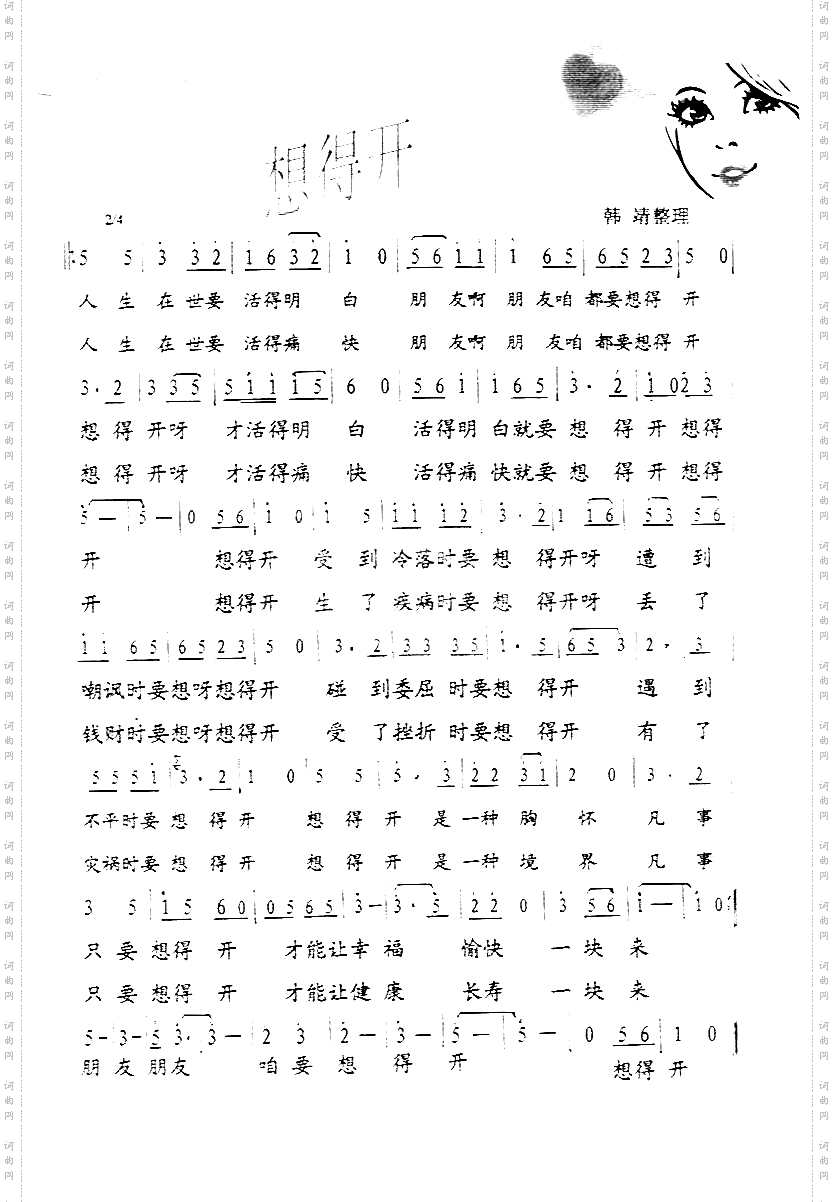 想得开
2/4
韩 靖整理
5 5 3 32 1632 10 5611 165 6523 50
人 生 在 世要 活得明 白 朋 友啊 朋 友咱 都要想得 开
人 生 在 世要 活得痛 快 朋 友啊 朋 友咱 都要想得 开
3· 2 3 35 5 1 1 1 5 6 0 5 6 1 1 6 5 3· 2 1 02 3
想 得 开呀 才活得明 白 活得明 白就要 想 得 开 想得
想 得 开呀 才活得痛 快 活得痛 快就要 想 得 开 想得
5 — 5 — 0 5 6 1 0 1 5 1 1 1 2 3· 2 1 1 6 5 3 5 6
开 想得开 受 到 冷落时要 想 得开呀 遭 到
开 想得开 生 了 疾病时要 想 得开呀 丢 了
1 1 6 5 6 5 2 3 5 0 3· 2 3 3 3 5 1· 5 6 5 3 2· 3
嘲讽时要想呀想得开 碰 到委屈 时要想 得开 遇 到
钱财时要想呀想得开 受 了挫折 时要想 得开 有 了
5 5 5 1 3· 2 1 0 5 5 5· 3 2 2 3 1 2 0 3· 2
不平时要 想 得 开 想 得 开 是 一种 胸 怀 凡 事
灾祸时要 想 得 开 想 得 开 是 一种 境 界 凡 事
3 5 1 5 6 0 0 5 6 5 3 — 3· 5 2 2 0 3 5 6 1 — 1 0
只 要 想得 开 才能让幸 福 愉快 一 块 来
只 要 想得 开 才能让健 康 长寿 一 块 来
5 - 3 - 5 3· 3 — 2 3 2 — 3 — 5 — 5 — 0 5 6 1 0
朋 友 朋友 咱 要 想 得 开 想得 开
词曲网